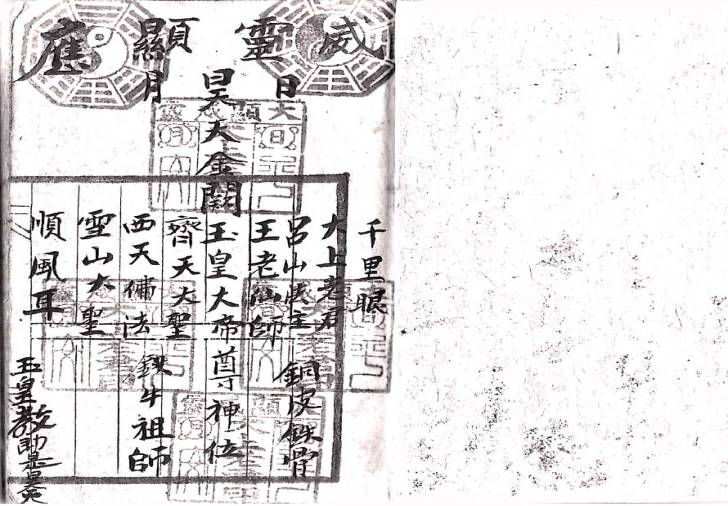 威靈顯應
日
月
千里眼
太上老君
呂山法主
銅皮鉄骨
王老仙師
昊天金闕
玉皇大帝尊神位
齊天大聖
西天佛法
鉄牛祖師
雪山大聖
順風耳
玉皇教